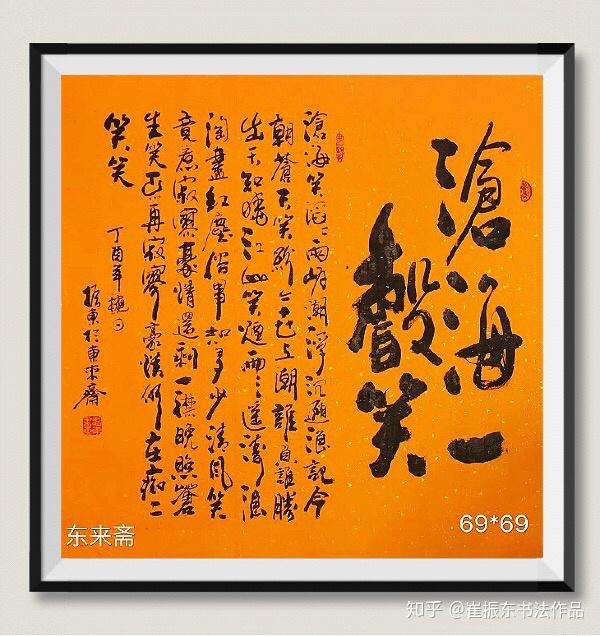 滄海一
聲笑
滄海笑滔〻兩岸潮浮沉隨浪記今
朝蒼天笑紛〻世上潮誰負誰勝
出天知曉江山笑煙雨〻遙濤浪
淘盡紅塵俗事知多少清風笑
竟惹寂寥豪情還剩一襟晚照蒼
生笑不再寂寥豪情仍在痴〻
笑笑
丁酉年
振東於東來齋
东来斋
69*69
知乎 @崔振东书法作品